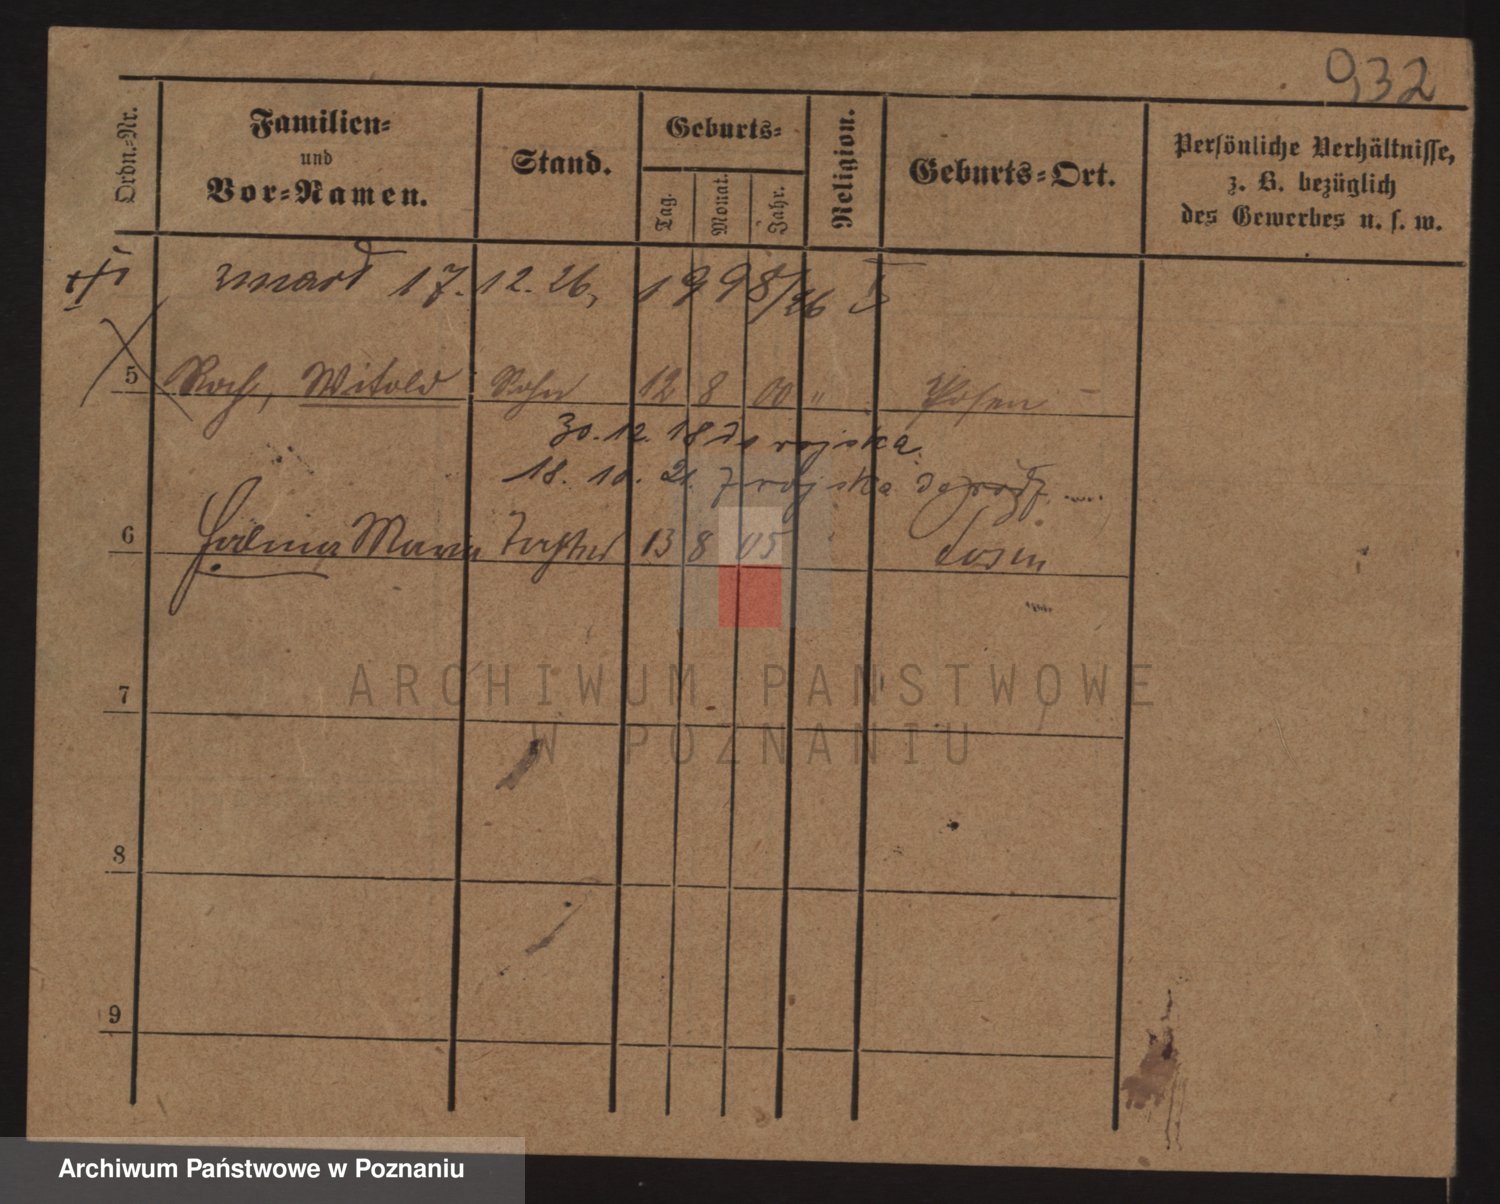 932
Ordn.-Nr.
Familien-
und
Vor-Namen.
Stand.
Geburts-
Tag.
Monat.
Jahr.
Religion.
Geburts-Ort.
Persönliche Verhältnisse,
z. B. bezüglich
des Gewerbes u. s. w.
zmarł 17.12.26, 1998/26 I
5 Roch, Witold Sohn 12 8 00 " Posen –
30.12.18 do wojska
18. 10. 21. z wojska do
6 Halina Maria Tochter 13 8 05 Posen
7
8
9
ARCHIWUM PAŃSTWOWE
W POZNANIU
Archiwum Państwowe w Poznaniu